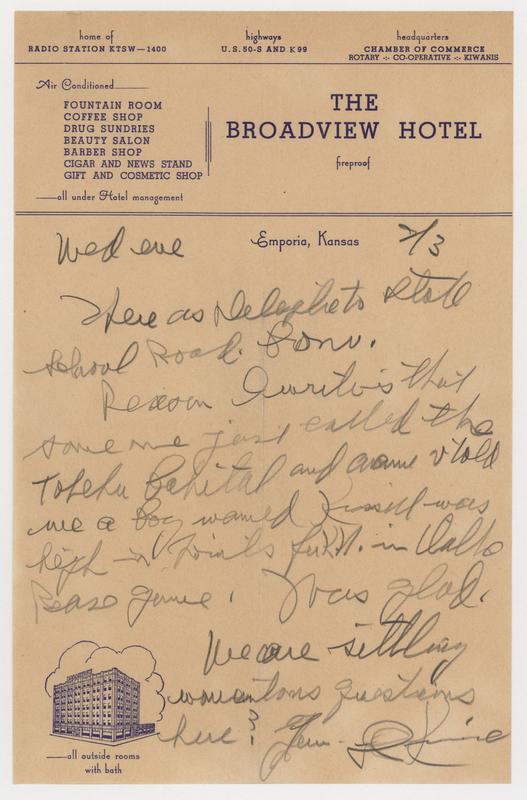 home of
RADIO STATION KTSW—1400
highways
U.S. 50-S AND K99
headquarters
CHAMBER OF COMMERCE
ROTARY -:- CO-OPERATIVE -:- KIWANIS
Air Conditioned
FOUNTAIN ROOM
COFFEE SHOP
DRUG SUNDRIES
BEAUTY SALON
BARBER SHOP
CIGAR AND NEWS STAND
GIFT AND COSMETIC SHOP
—all under Hotel management
THE
BROADVIEW HOTEL
fireproof
Emporia, Kansas
Wed eve 2/3
Here as Delegate to State
School Road. Conv.
Reason I write is that
some one just called the
Topeka Capital and told
me a boy named Russell was
high in points for in
game. Was glad.
We are settling
questions
here?
—all outside rooms
with bath